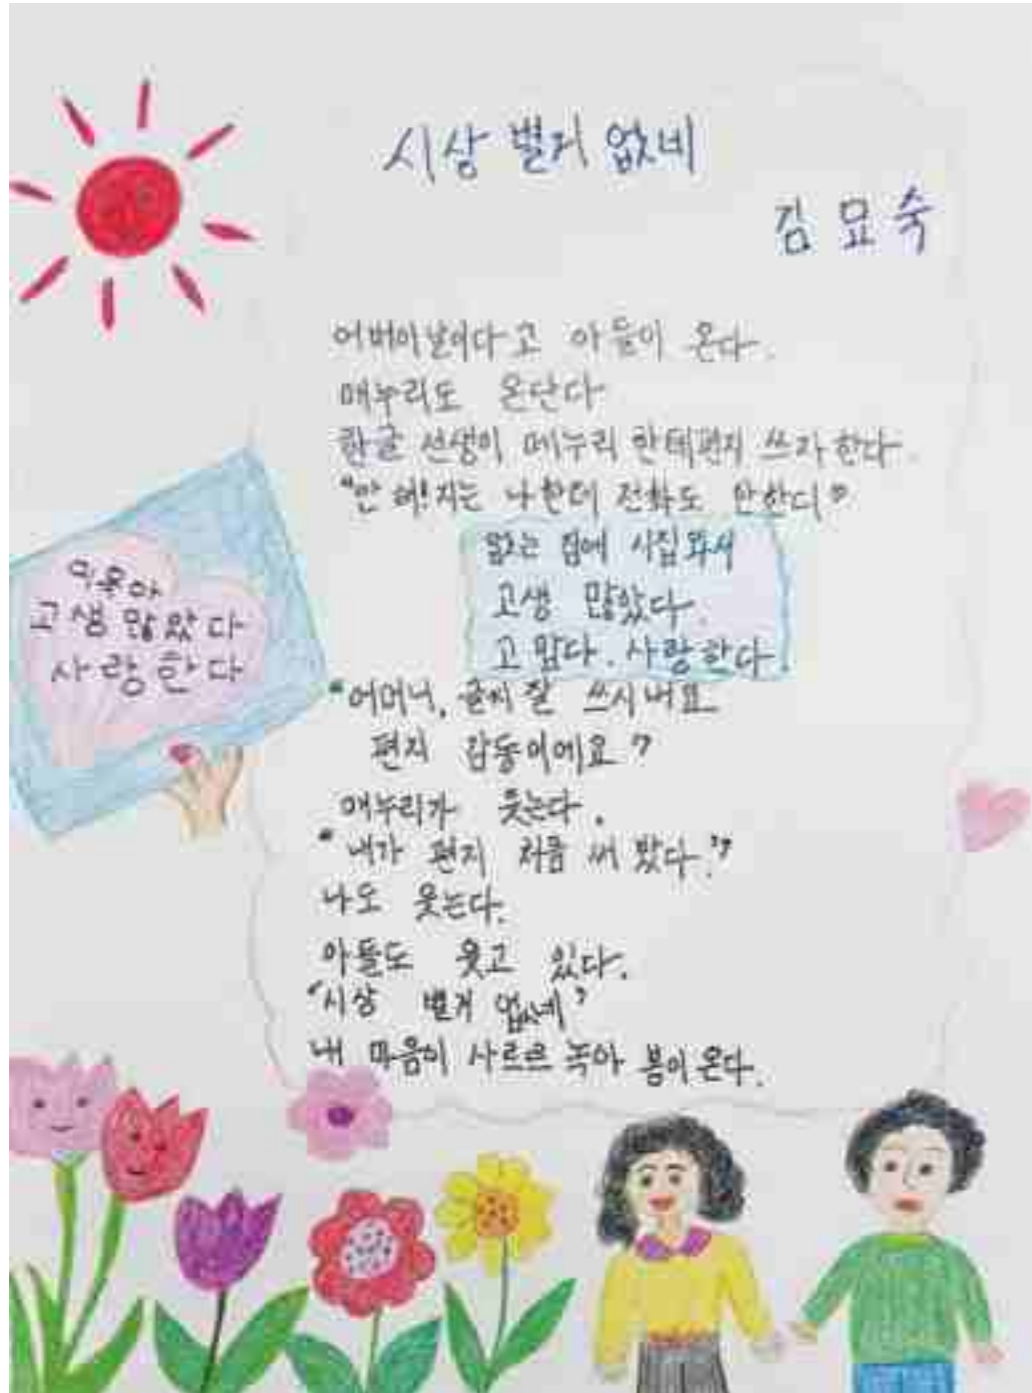 시상 별거 없네
김묘숙
어버이날이다고 아들이 온다.
매누리도 온단다
한글 선생이 메누리 한테편지 쓰자 한다.
"안 해! 지는 나한테 전화도 안한디"
없는 집에 시집와서
고생 많았다.
고맙다. 사랑한다.
고생 많았다
사랑한다
"어머니, 글씨 잘 쓰시네요
편지 감동이에요"
매누리가 웃는다.
"내가 편지 처음 써 봤다."
나도 웃는다.
아들도 웃고 있다.
"시상 별거 없네"
내 마음이 사르르 녹아 봄이 온다.